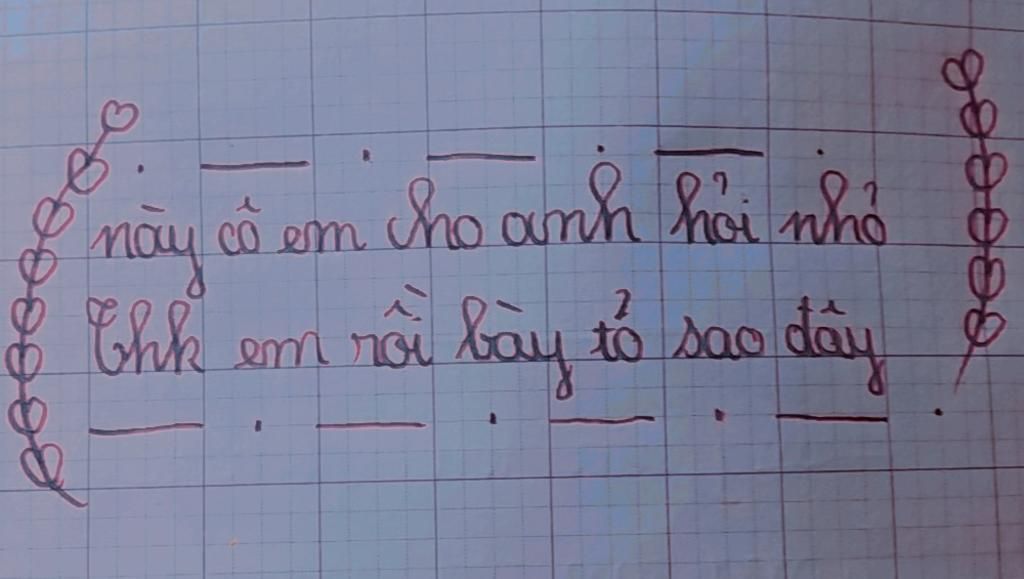 này cô em cho anh hỏi nhỏ
thk em rồi bày tỏ sao đây